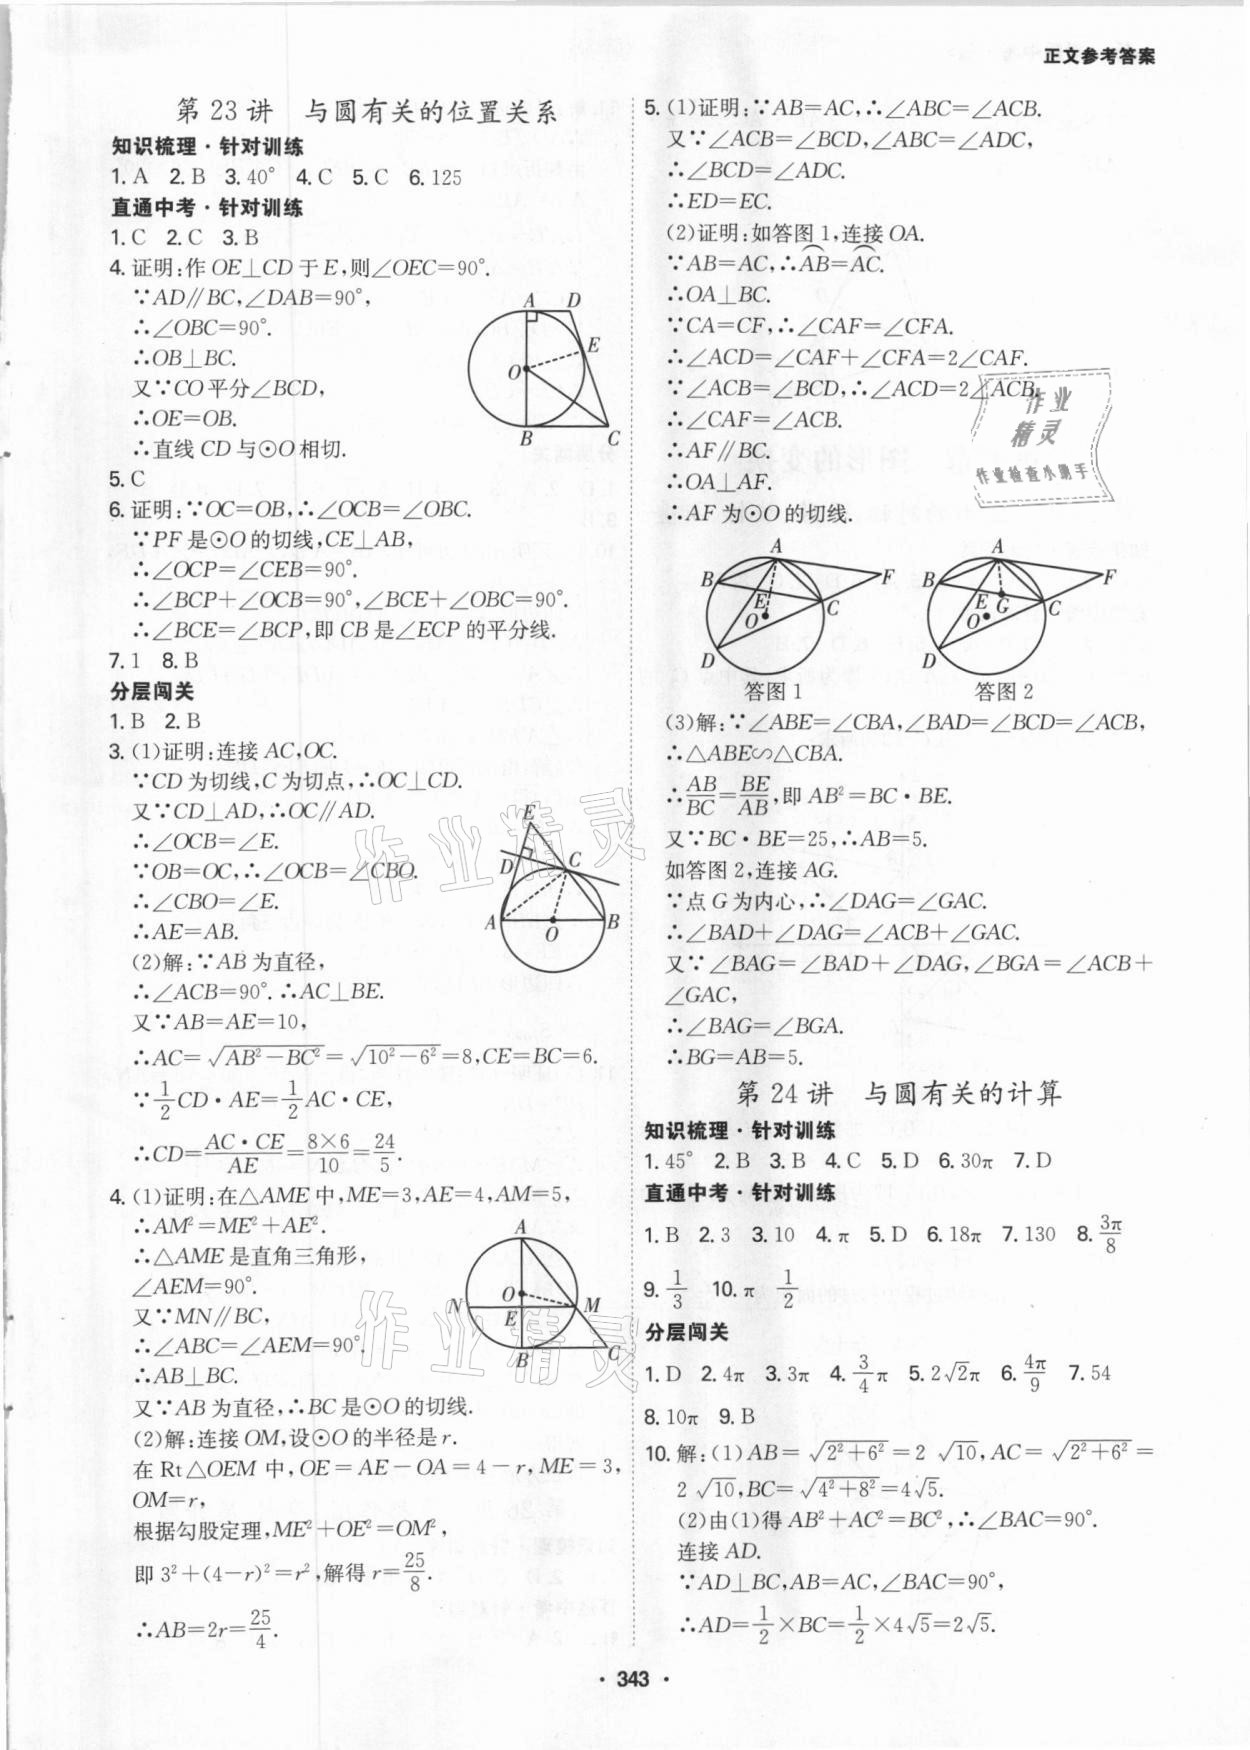 正文参考答案
第 23 讲 与圆有关的位置关系
知识梳理·针对训练
1. A 2. B 3. 40° 4. C 5. C 6. 125
直通中考·针对训练
1. C 2. C 3. B
4. 证明:作 OE⊥CD 于 E,则∠OEC=90°.
∵AD∥BC,∠DAB=90°,
∴∠OBC=90°.
∴OB⊥BC.
又∵CO 平分∠BCD,
∴OE=OB.
∴直线 CD 与⊙O 相切.
A D
E
O
B C
5. C
6. 证明:∵OC=OB,∴∠OCB=∠OBC.
∵PF 是⊙O 的切线,CE⊥AB,
∴∠OCP=∠CEB=90°.
∴∠BCP+∠OCB=90°,∠BCE+∠OBC=90°.
∴∠BCE=∠BCP,即 CB 是∠ECP 的平分线.
7. 1 8. B
分层闯关
1. B 2. B
3. (1)证明:连接 AC,OC.
∵CD 为切线,C 为切点,∴OC⊥CD.
又∵CD⊥AD,∴OC∥AD.
∴∠OCB=∠E.
∵OB=OC,∴∠OCB=∠CBO.
∴∠CBO=∠E.
∴AE=AB.
(2)解:∵AB 为直径,
∴∠ACB=90°.∴AC⊥BE.
又∵AB=AE=10,
∴AC=√(AB²−BC²)=√(10²−6²)=8,CE=BC=6.
∵1/2 CD·AE=1/2 AC·CE,
∴CD=AC·CE/AE=8×6/10=24/5.
E
D C
A O B
4. (1)证明:在△AME 中,ME=3,AE=4,AM=5,
∴AM²=ME²+AE².
∴△AME 是直角三角形,
∠AEM=90°.
又∵MN∥BC,
∴∠ABC=∠AEM=90°.
∴AB⊥BC.
又∵AB 为直径,∴BC 是⊙O 的切线.
(2)解:连接 OM,设⊙O 的半径是 r.
在 Rt△OEM 中,OE=AE−OA=4−r,ME=3,
OM=r,
根据勾股定理,ME²+OE²=OM²,
即 3²+(4−r)²=r²,解得 r=25/8.
∴AB=2r=25/4.
A
O
N E M
B C
5. (1)证明:∵AB=AC,∴∠ABC=∠ACB.
又∵∠ACB=∠BCD,∠ABC=∠ADC,
∴∠BCD=∠ADC.
∴ED=EC.
(2)证明:如答图 1,连接 OA.
∵AB=AC,∴⌒AB=⌒AC.
∴OA⊥BC.
∵CA=CF,∴∠CAF=∠CFA.
∴∠ACD=∠CAF+∠CFA=2∠CAF.
∵∠ACB=∠BCD,∴∠ACD=2∠ACB.
∴∠CAF=∠ACB.
∴AF∥BC.
∴OA⊥AF.
∴AF 为⊙O 的切线.
A
B F
E C
O
D
答图 1
A
B F
E G C
O
D
答图 2
(3)解:∵∠ABE=∠CBA,∠BAD=∠BCD=∠ACB,
∴△ABE∽△CBA.
∴AB/BC=BE/AB,即 AB²=BC·BE.
又∵BC·BE=25,∴AB=5.
如答图 2,连接 AG.
∵点 G 为内心,∴∠DAG=∠GAC.
∴∠BAD+∠DAG=∠ACB+∠GAC.
又∵∠BAG=∠BAD+∠DAG,∠BGA=∠ACB+
∠GAC,
∴∠BAG=∠BGA.
∴BG=AB=5.
第 24 讲 与圆有关的计算
知识梳理·针对训练
1. 45° 2. B 3. B 4. C 5. D 6. 30π 7. D
直通中考·针对训练
1. B 2. 3 3. 10 4. π 5. D 6. 18π 7. 130 8. 3π/8
9. 1/3 10. π 1/2
分层闯关
1. D 2. 4π 3. 3π 4. 3/4 π 5. 2√2π 6. 4π/9 7. 54
8. 10π 9. B
10. 解:(1)AB=√(2²+6²)=2√10,AC=√(2²+6²)=
2√10,BC=√(4²+8²)=4√5.
(2)由(1)得 AB²+AC²=BC²,∴∠BAC=90°.
连接 AD.
∵AD⊥BC,AB=AC,∠BAC=90°,
∴AD=1/2×BC=1/2×4√5=2√5.
作业
精灵
作业检查小助手
作业精灵
作业精灵
· 343 ·